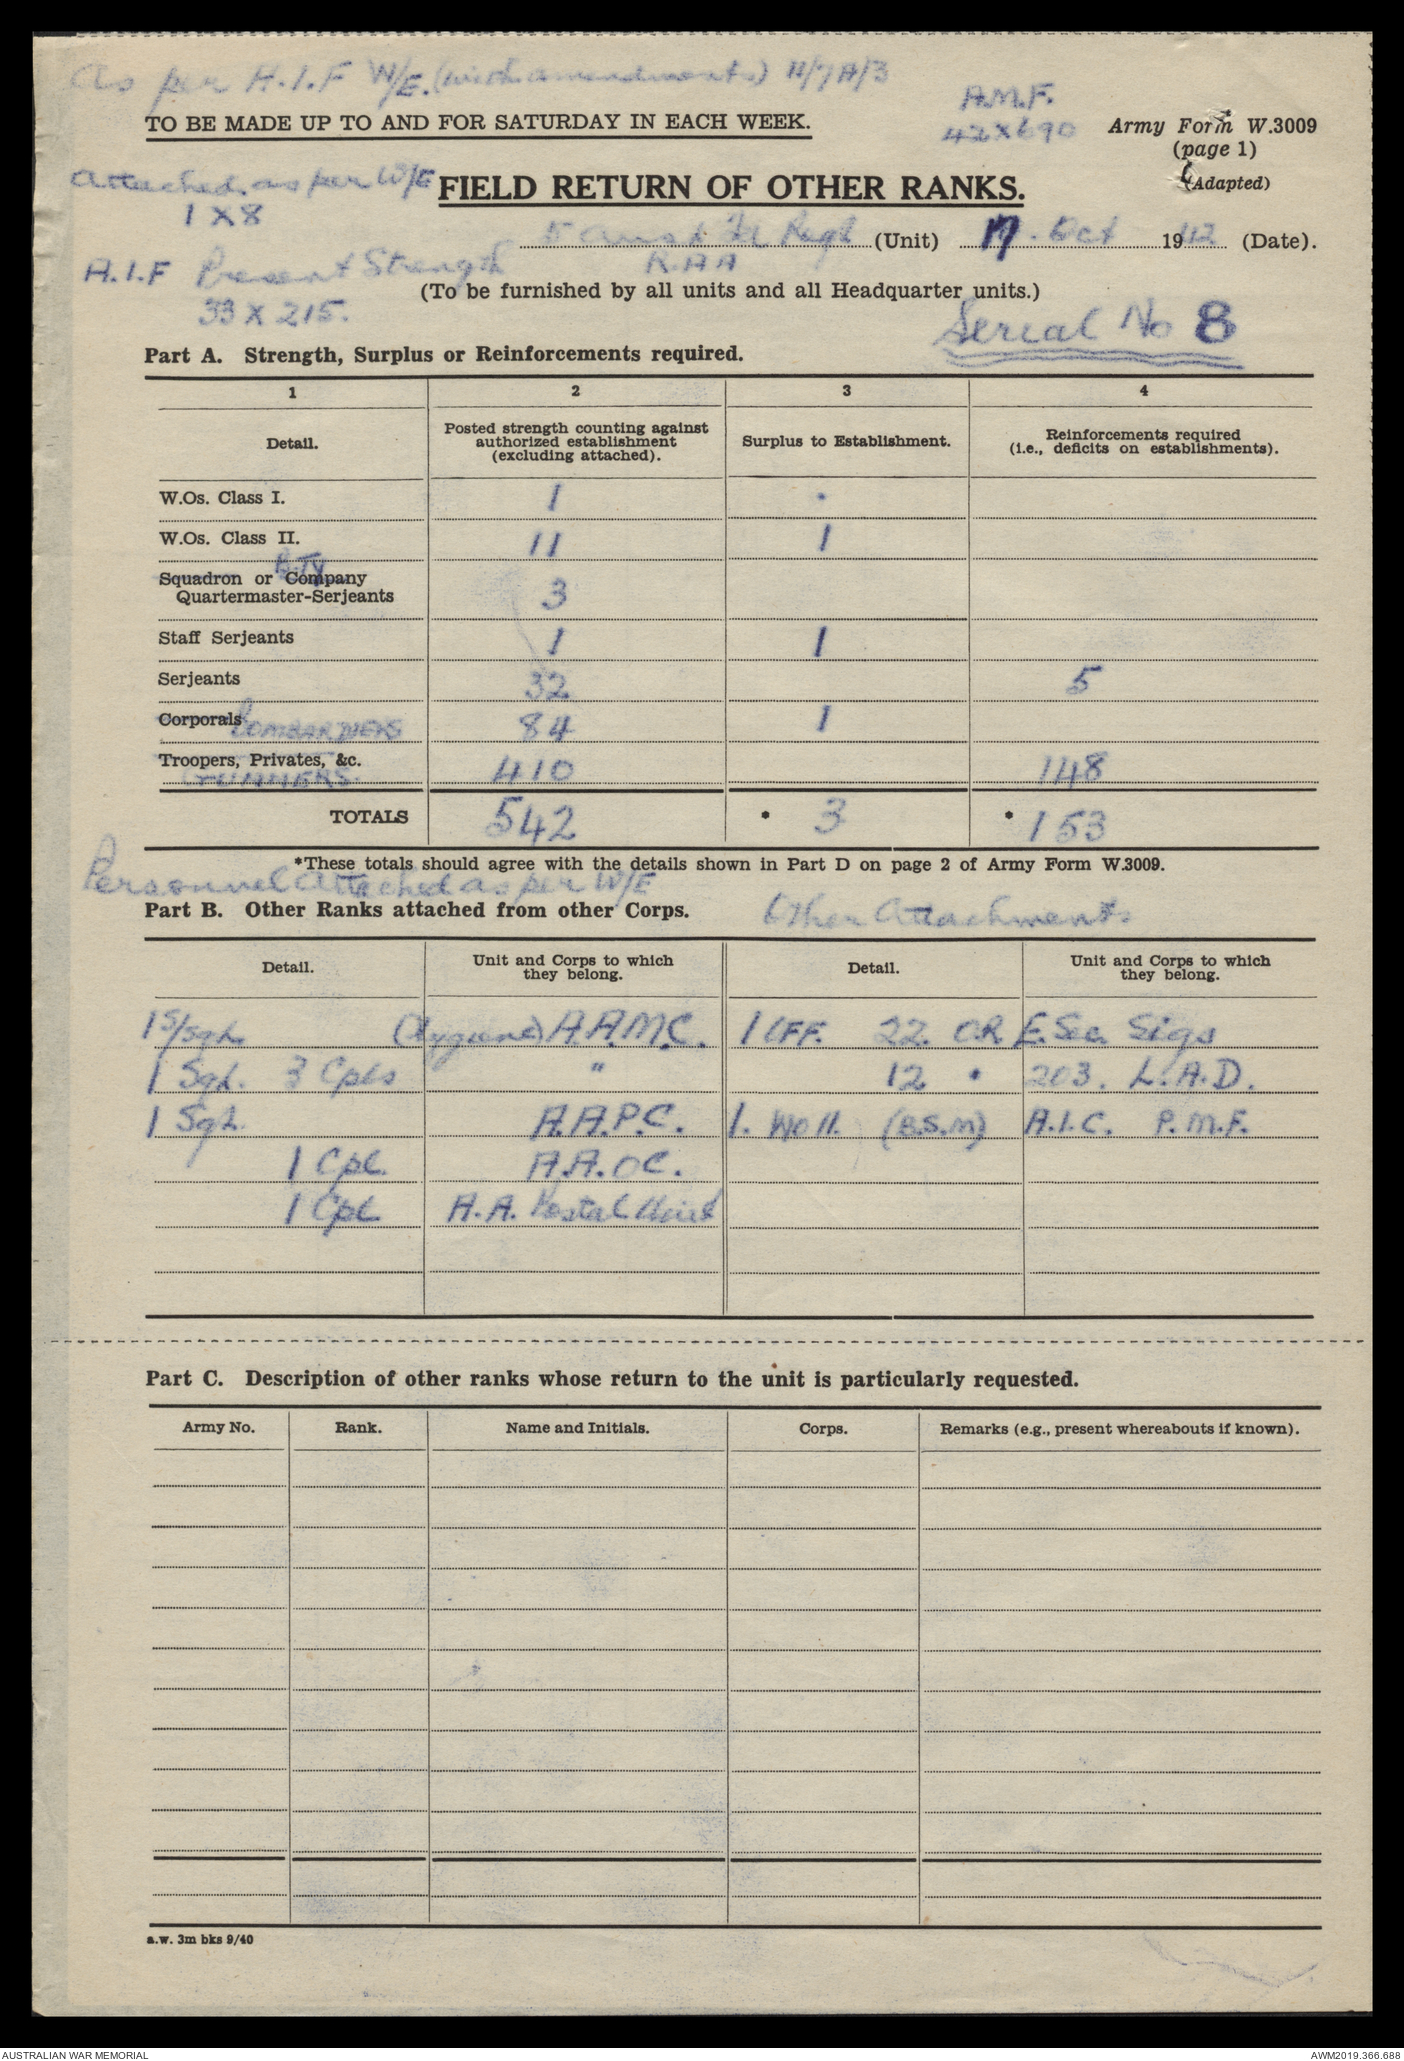 As per A.I.F W/E. (with amendments) II/7A/3
A.M.F.
42X690
TO BE MADE UP TO AND FOR SATURDAY IN EACH WEEK.
Army Form W.3009
(page 1)
(Adapted)
Attached as per W/E
1 X 8
FIELD RETURN OF OTHER RANKS.
5 Aust Fd Regt (Unit) 17 - Oct 1942 (Date).
R.A.A
A.I.F Present Strength
33 X 215.
(To be furnished by all units and all Headquarter units.)
Serial No 8
Part A. Strength, Surplus or Reinforcements required.
1 2 3 4
Detail. Posted strength counting against authorized establishment (excluding attached). Surplus to Establishment. Reinforcements required (i.e., deficits on establishments).
W.Os. Class I. 1 .
W.Os. Class II. 11 1
Bty
Squadron or Company
Quartermaster-Serjeants 3
Staff Serjeants 1 1
Serjeants 32 5
Corporals BOMBARDIERS 84 1
Troopers, Privates, &c. 410 148
GUNNERS.
TOTALS 542 * 3 * 153
*These totals should agree with the details shown in Part D on page 2 of Army Form W.3009.
Personnel Attached as per W/E
Part B. Other Ranks attached from other Corps. Other Attachments
Detail. Unit and Corps to which they belong. Detail. Unit and Corps to which they belong.
1 S/Sgt. (Hygiene) A.A.M.C. 1 OFF. 22. OR E. Sec. Sigs
1 Sgt. 3 Cpls " 12 " 203. L.A.D.
1 Sgt. A.A.P.C. 1. WO II. (B.S.M) A.I.C. P.M.F.
1 Cpl. A.A.OC.
1 Cpl A.A. Postal Unit
Part C. Description of other ranks whose return to the unit is particularly requested.
Army No. Rank. Name and Initials. Corps. Remarks (e.g., present whereabouts if known).
a.w. 3m bks 9/40
AUSTRALIAN WAR MEMORIAL
AWM2019.366.688